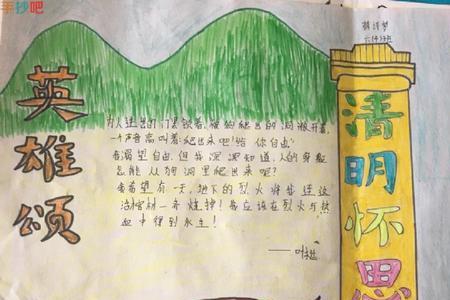 手抄吧
英雄颂
为人进出的门紧锁着,为狗爬出的洞敞开着,
一个声音高叫着:爬出来吧!给你自由!
我渴望自由,但我深深知道,人的身躯
怎能从狗洞里爬出来呢?
我希望有一天,地下的烈火将我连这
活棺材一齐烧掉!我应该在烈火与热
血中得到永生!
——叶挺
清明怀思